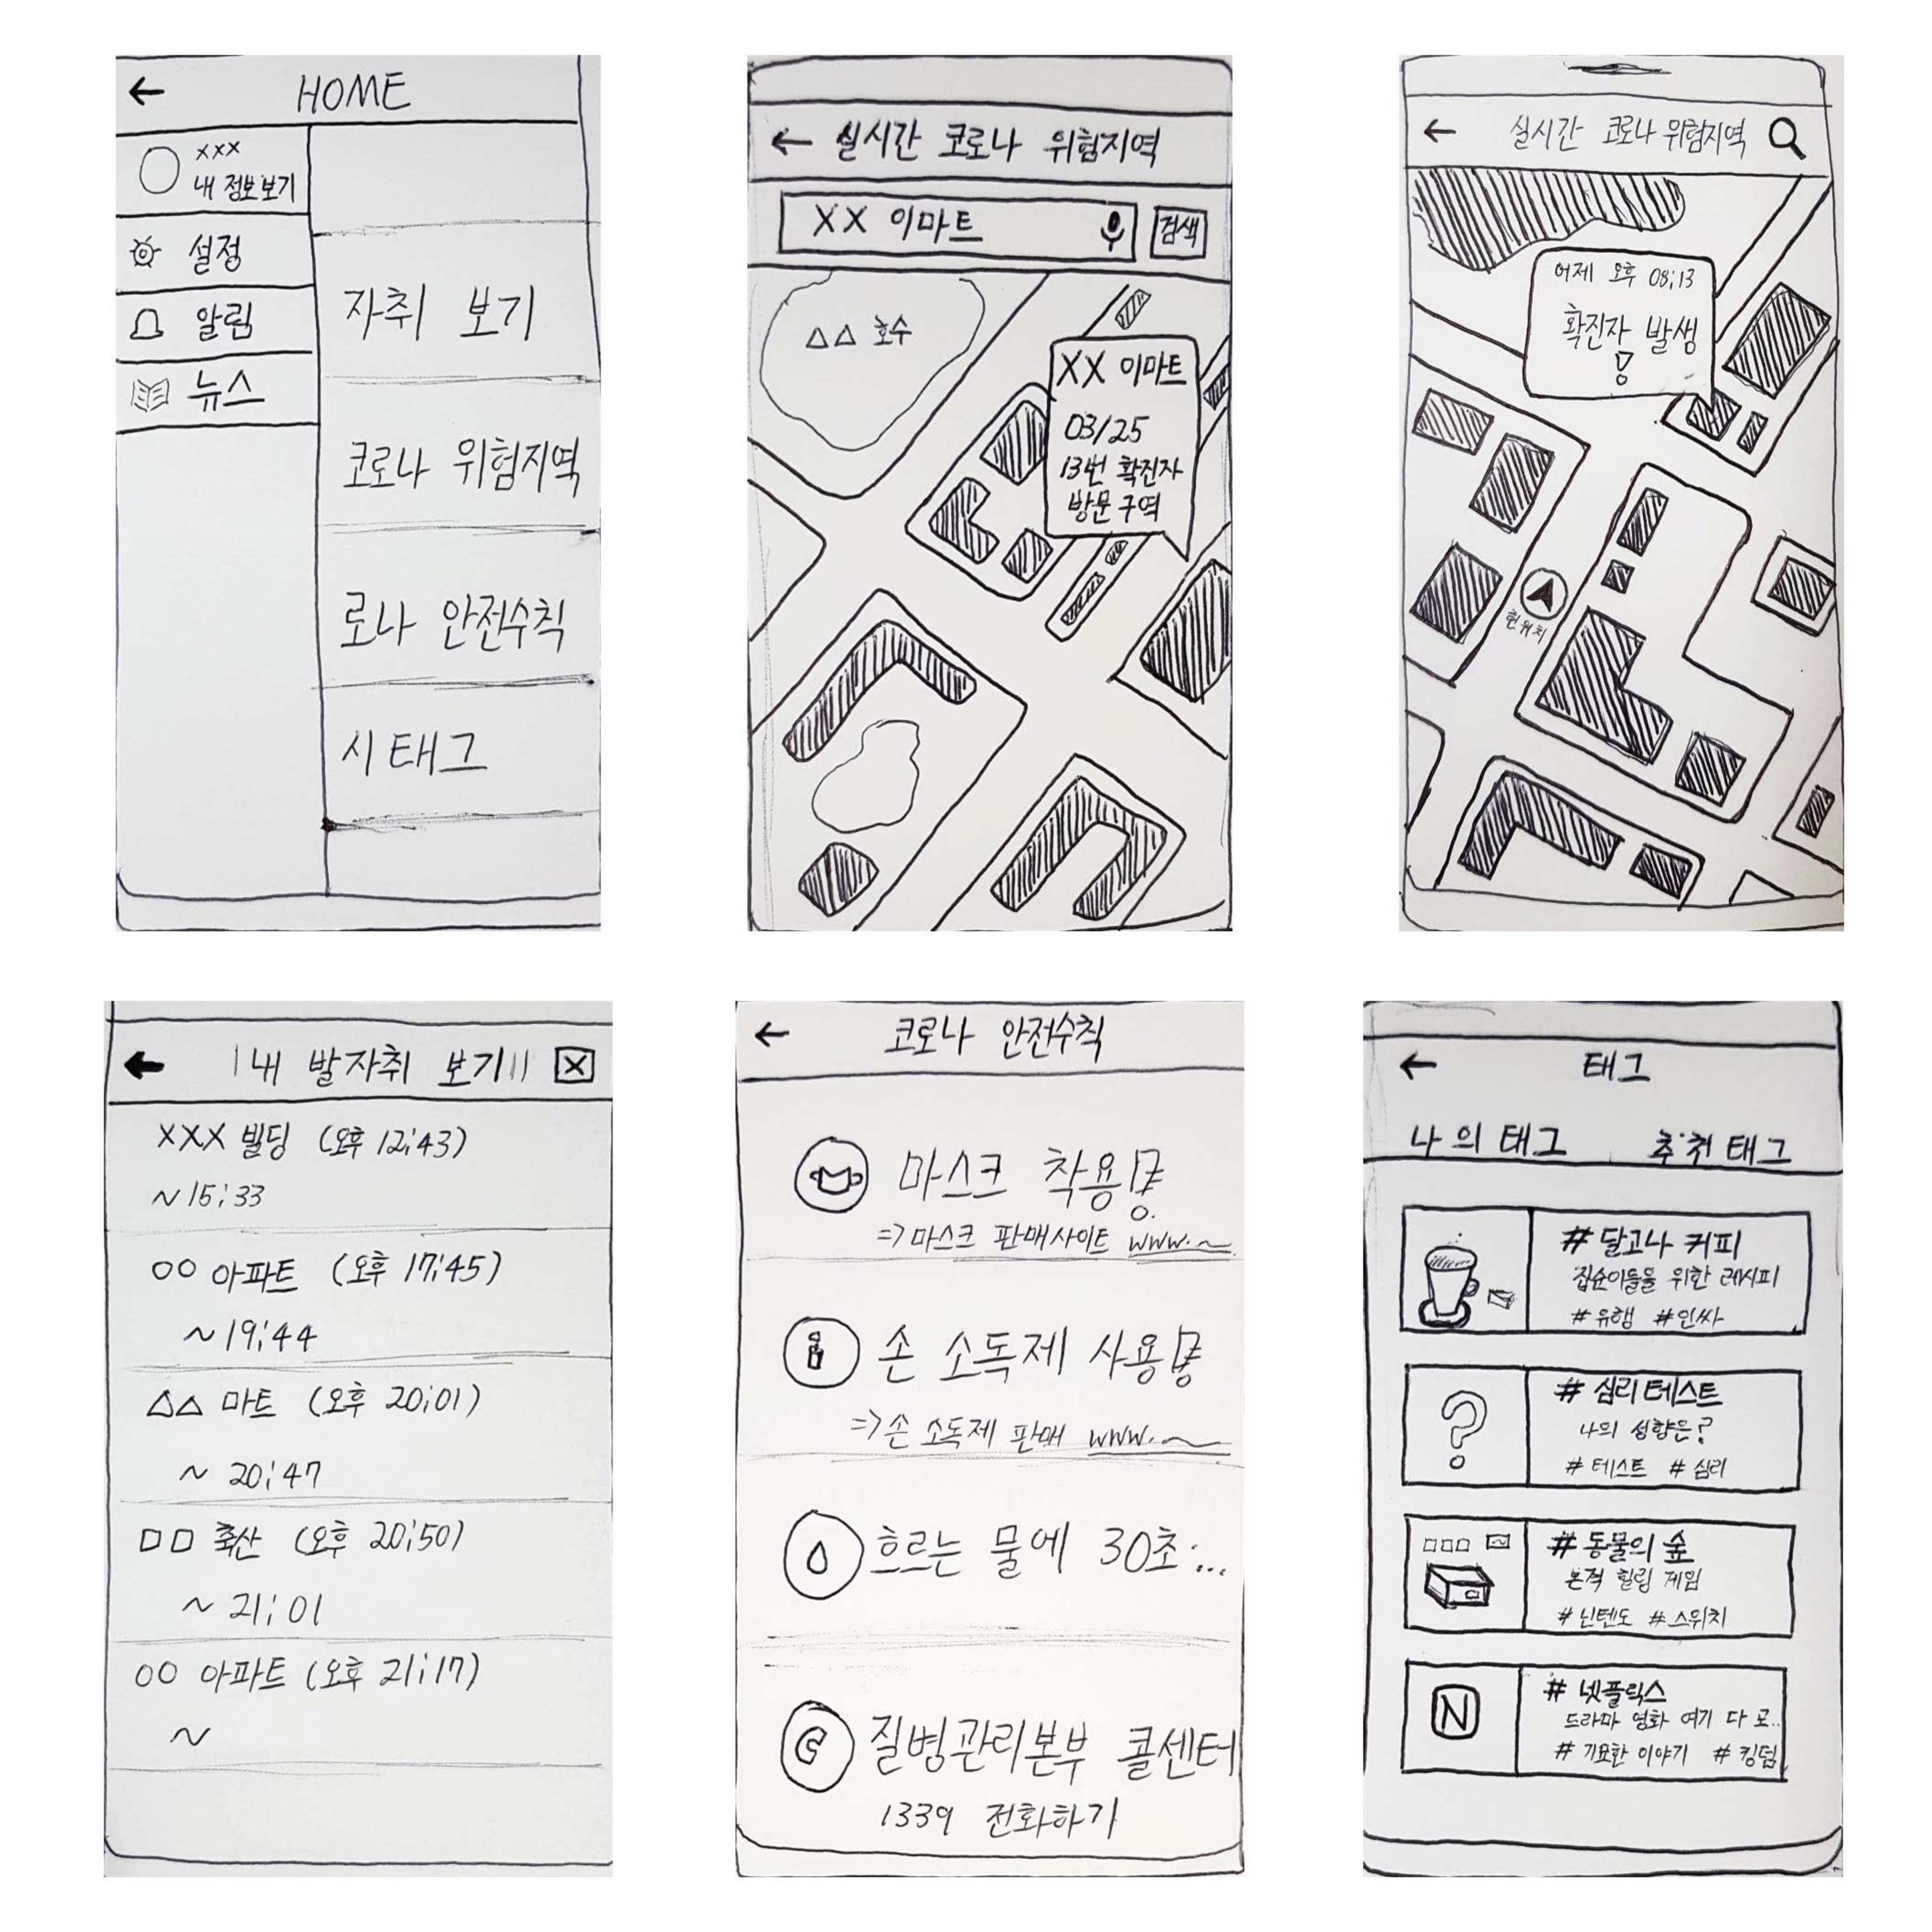 ← HOME
xxx
내 정보보기
설정
알림
뉴스
자취 보기
코로나 위험지역
로나 안전수칙
시태그
← 실시간 코로나 위험지역
XX 이마트
검색
△△ 호수
XX 이마트
03/25
13번 확진자
방문 구역
← 실시간 코로나 위험지역
어제 오후 08:13
확진자 발생
!
현위치
← 내 발자취 보기
XXX 빌딩 (오후 12:43)
~15:33
○○ 아파트 (오후 17:45)
~19:44
△△ 마트 (오후 20:01)
~ 20:47
□□ 축산 (오후 20:50)
~ 21:01
○○ 아파트 (오후 21:17)
~
← 코로나 안전수칙
마스크 착용!
=> 마스크 판매사이트 www.~
손 소독제 사용!
=> 손 소독제 판매 www.~
흐르는 물에 30초...
질병관리본부 콜센터
1339 전화하기
← 태그
나의 태그 추천 태그
# 달고나 커피
집순이들을 위한 레시피
# 유행 # 인싸
?
# 심리테스트
나의 성향은?
# 테스트 # 심리
# 동물의 숲
본격 힐링 게임
# 닌텐도 # 스위치
N
# 넷플릭스
드라마 영화 여기 다 모..
# 기묘한 이야기 # 킹덤